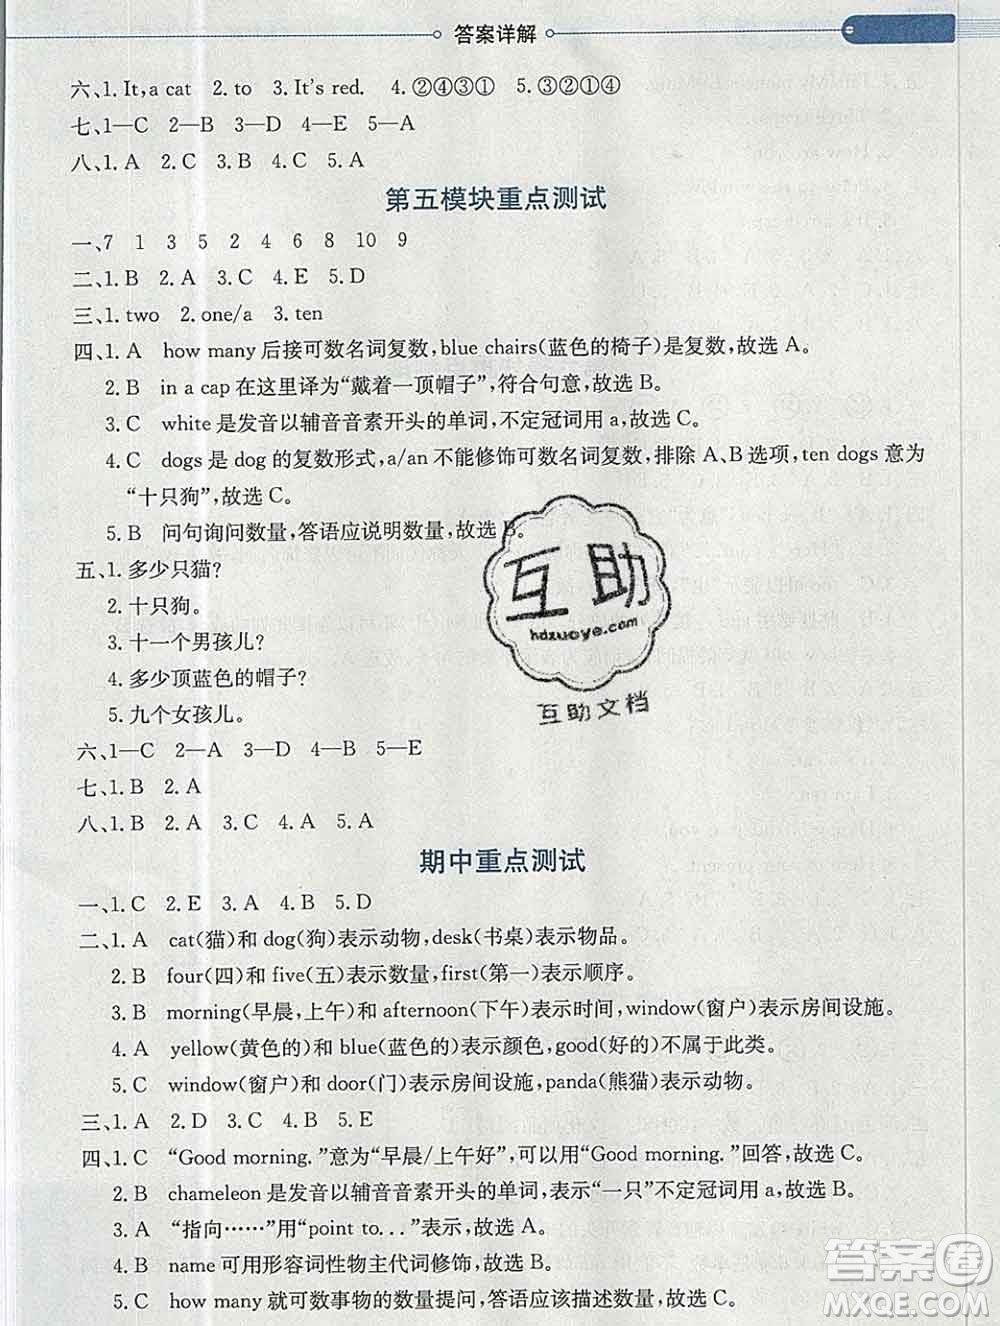 答案详解
六、1. It, a cat 2. to 3. It's red. 4. ②④③① 5. ③②①④
七、1—C 2—B 3—D 4—E 5—A
八、1. A 2. C 3. B 4. C 5. A
第五模块重点测试
一、7 1 3 5 2 4 6 8 10 9
二、1. B 2. A 3. C 4. E 5. D
三、1. two 2. one/a 3. ten
四、1. A how many 后接可数名词复数,blue chairs(蓝色的椅子)是复数,故选 A。
2. B in a cap 在这里译为“戴着一顶帽子”,符合句意,故选 B。
3. C white 是发音以辅音音素开头的单词,不定冠词用 a,故选 C。
4. C dogs 是 dog 的复数形式,a/an 不能修饰可数名词复数,排除 A、B 选项,ten dogs 意为
“十只狗”,故选 C。
5. B 问句询问数量,答语应说明数量,故选 B。
五、1. 多少只猫?
2. 十只狗。
3. 十一个男孩儿?
4. 多少顶蓝色的帽子?
5. 九个女孩儿。
互助
hdzuoye.com
互助文档
六、1—C 2—A 3—D 4—B 5—E
七、1. B 2. A
八、1. B 2. A 3. C 4. A 5. A
期中重点测试
一、1. C 2. E 3. A 4. B 5. D
二、1. A cat(猫)和 dog(狗)表示动物,desk(书桌)表示物品。
2. B four(四)和 five(五)表示数量,first(第一)表示顺序。
3. B morning(早晨,上午)和 afternoon(下午)表示时间,window(窗户)表示房间设施。
4. A yellow(黄色的)和 blue(蓝色的)表示颜色,good(好的)不属于此类。
5. C window(窗户)和 door(门)表示房间设施,panda(熊猫)表示动物。
三、1. A 2. D 3. C 4. B 5. E
四、1. C “Good morning. ”意为“早晨/上午好”,可以用“Good morning. ”回答,故选 C。
2. B chameleon 是发音以辅音音素开头的单词,表示“一只”不定冠词用 a,故选 B。
3. A “指向……”用“point to. . . ”表示,故选 A。
4. B name 可用形容词性物主代词修饰,故选 B。
5. C how many 就可数事物的数量提问,答语应该描述数量,故选 C。
答案圈
MXQE.COM